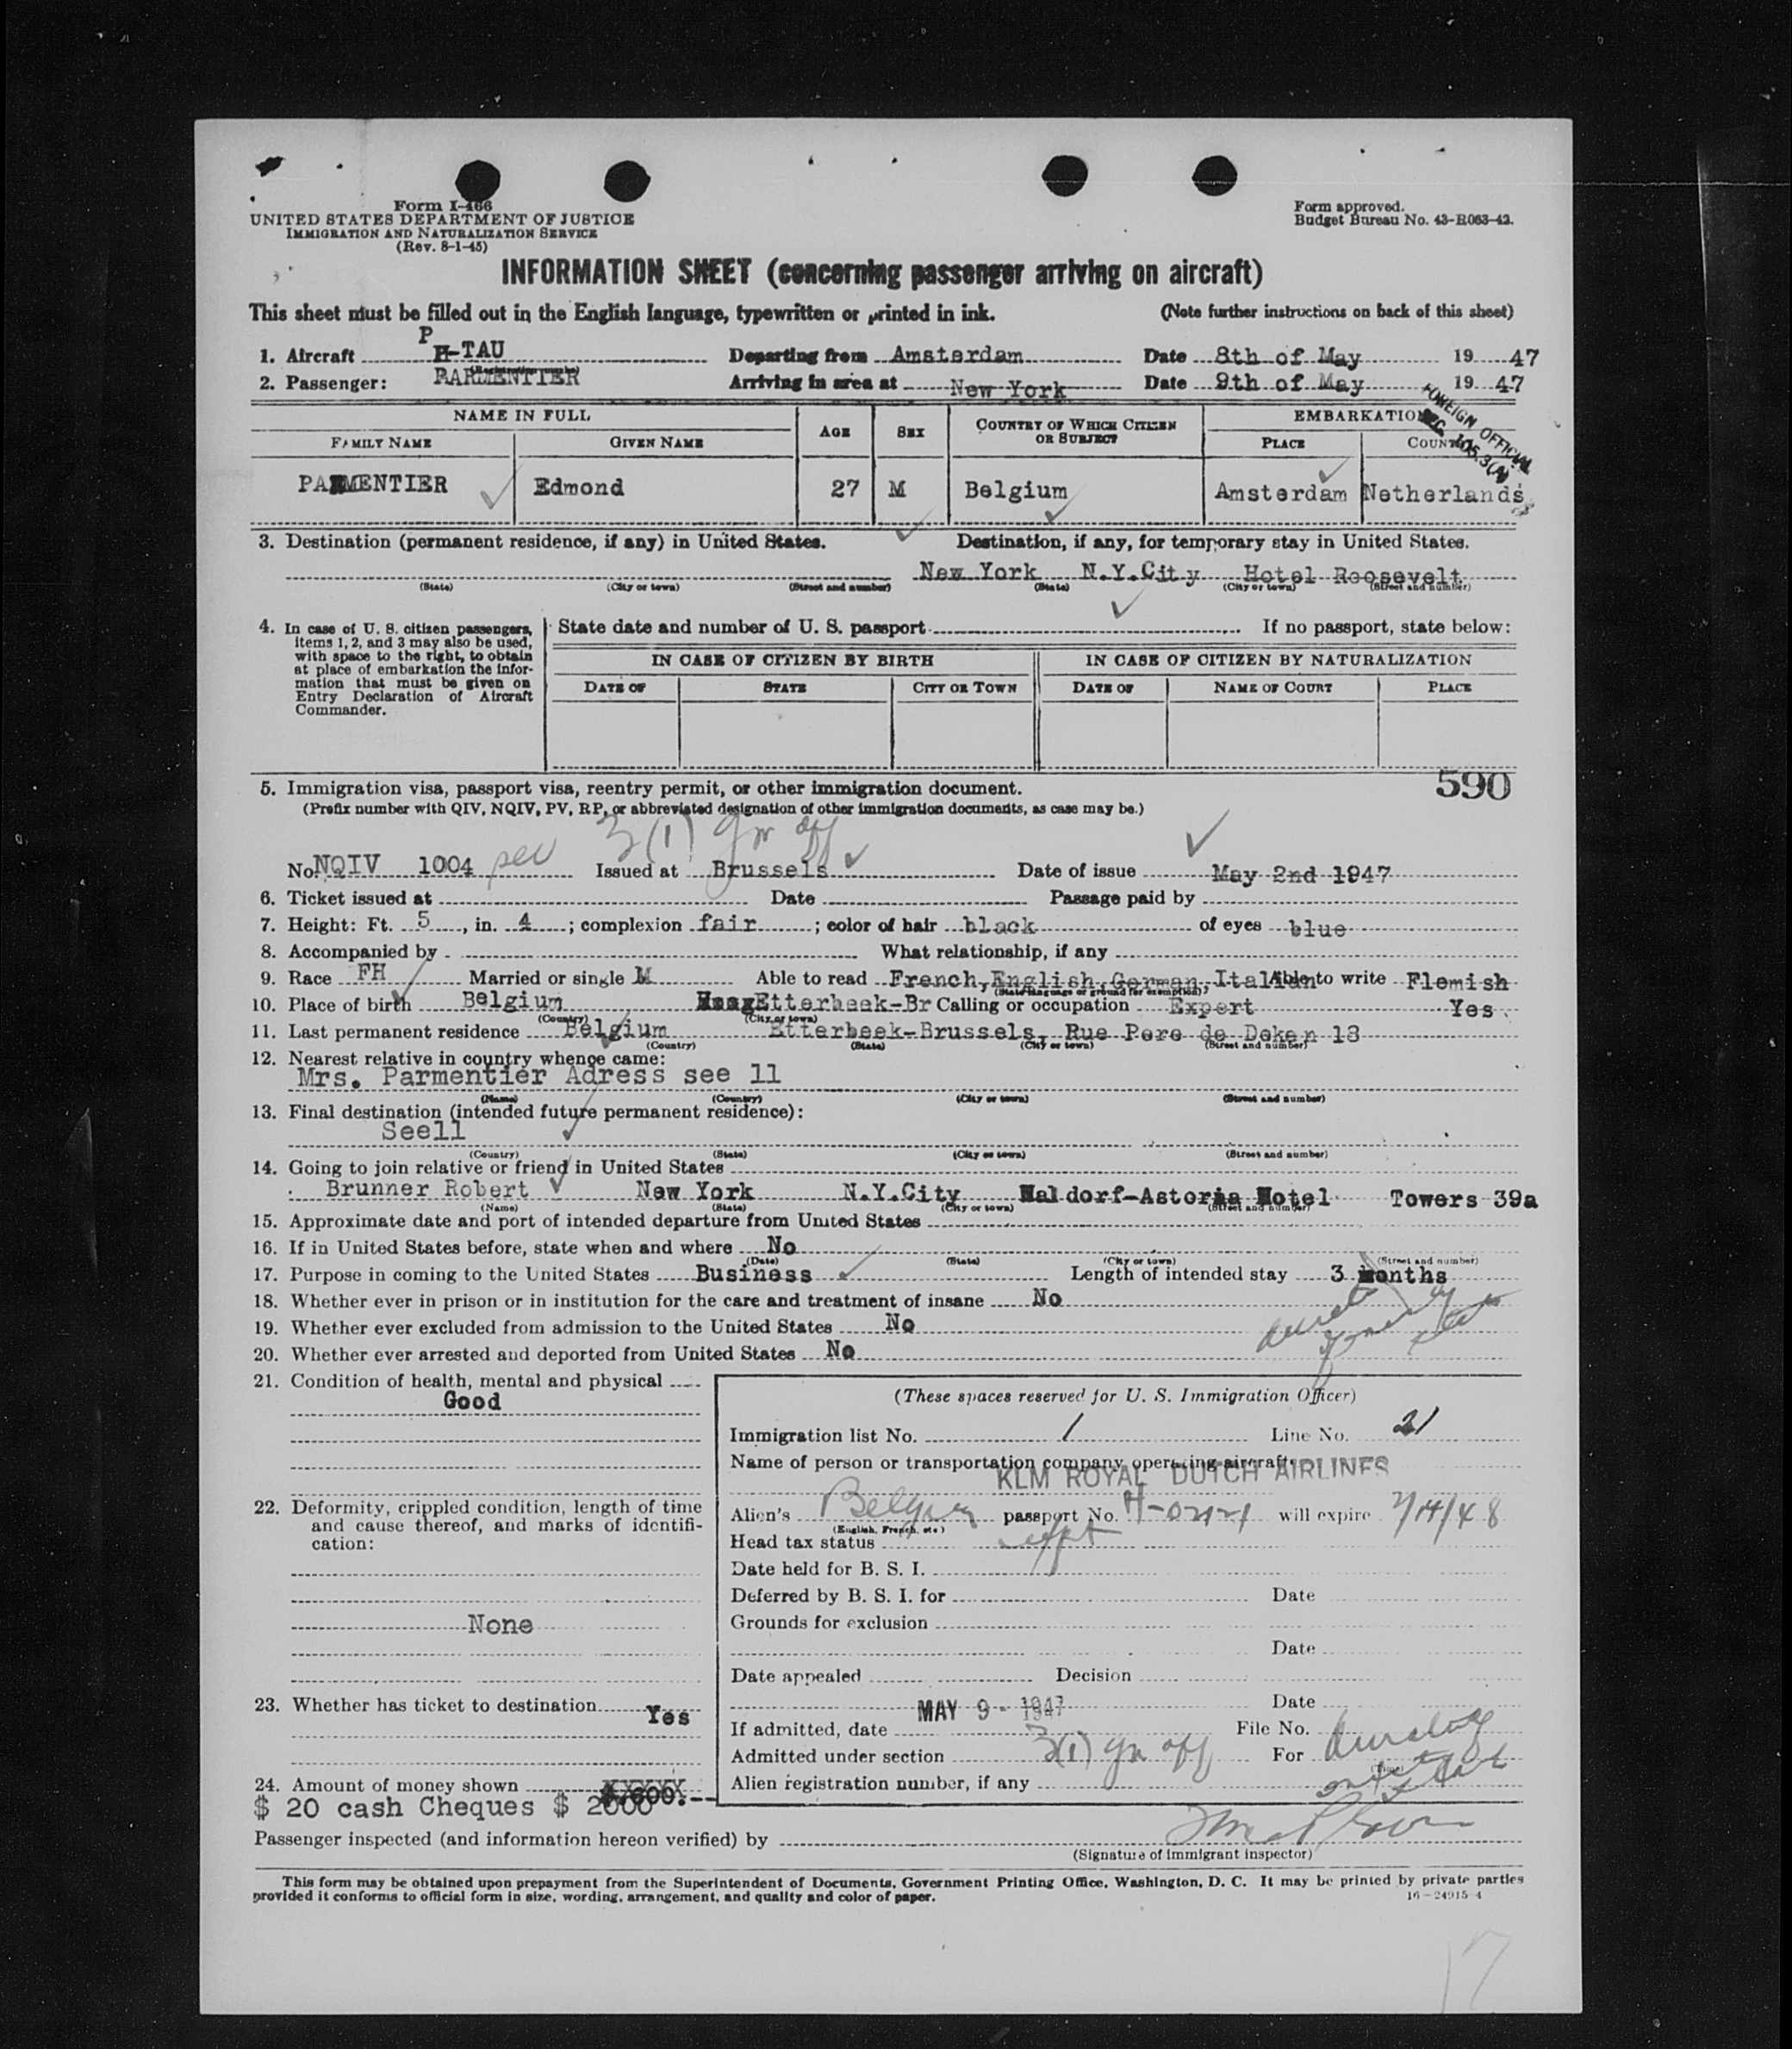 Form I-466
UNITED STATES DEPARTMENT OF JUSTICE
IMMIGRATION AND NATURALIZATION SERVICE
(Rev. 8-1-45)
Form approved.
Budget Bureau No. 43-R063-42.
INFORMATION SHEET (concerning passenger arriving on aircraft)
This sheet must be filled out in the English language, typewritten or printed in ink. (Note further instructions on back of this sheet)
P
1. Aircraft H-TAU Departing from Amsterdam Date 8th of May 19 47
2. Passenger: PARMENTIER Arriving in area at New York Date 9th of May 19 47
FOREIGN OFFICIAL
NAME IN FULL AGE SEX COUNTRY OF WHICH CITIZEN OR SUBJECT EMBARKATION
FAMILY NAME GIVEN NAME PLACE COUNTRY
PARMENTIER Edmond 27 M Belgium Amsterdam Netherlands
3. Destination (permanent residence, if any) in United States. Destination, if any, for temporary stay in United States.
New York N.Y.City Hotel Roosevelt
(State) (City or town) (Street and number) (State) (City or town) (Street and number)
4. In case of U. S. citizen passengers, items 1, 2, and 3 may also be used, with space to the right, to obtain at place of embarkation the information that must be given on Entry Declaration of Aircraft Commander.
State date and number of U. S. passport If no passport, state below:
IN CASE OF CITIZEN BY BIRTH IN CASE OF CITIZEN BY NATURALIZATION
DATE OF STATE CITY OR TOWN DATE OF NAME OF COURT PLACE
590
5. Immigration visa, passport visa, reentry permit, or other immigration document.
(Prefix number with QIV, NQIV, PV, RP, or abbreviated designation of other immigration documents, as case may be.)
3(1) gv off
No. NQIV 1004 Issued at Brussels Date of issue May 2nd 1947
6. Ticket issued at Date Passage paid by
7. Height: Ft. 5, in. 4; complexion fair; color of hair black of eyes blue
8. Accompanied by What relationship, if any
9. Race FH Married or single M Able to read French, English, German, Italian Able to write Flemish
(State language or ground for exemption)
10. Place of birth Belgium Etterbeek-Br Calling or occupation Expert Yes
(Country) (City or town)
11. Last permanent residence Belgium Etterbeek-Brussels, Rue Pere de Deken 18
(Country) (State) (City or town) (Street and number)
12. Nearest relative in country whence came:
Mrs. Parmentier Adress see 11
(Name) (Country) (City or town) (Street and number)
13. Final destination (intended future permanent residence):
See11
(Country) (State) (City or town) (Street and number)
14. Going to join relative or friend in United States
Brunner Robert New York N.Y.City Waldorf-Astoria Hotel Towers 39a
(Name) (State) (City or town) (Street and number)
15. Approximate date and port of intended departure from United States
16. If in United States before, state when and where No
(Date) (State) (City or town) (Street and number)
17. Purpose in coming to the United States Business Length of intended stay 3 months
18. Whether ever in prison or in institution for the care and treatment of insane No
19. Whether ever excluded from admission to the United States No
20. Whether ever arrested and deported from United States No
21. Condition of health, mental and physical
Good
(These spaces reserved for U. S. Immigration Officer)
Immigration list No. 1 Line No. 21
Name of person or transportation company operating aircraft
KLM ROYAL DUTCH AIRLINES
22. Deformity, crippled condition, length of time and cause thereof, and marks of identification:
None
Alien's Belgian passport No. will expire 2/14/48
(English, French, etc.)
Head tax status
Date held for B. S. I.
Deferred by B. S. I. for Date
Grounds for exclusion
Date
Date appealed Decision
23. Whether has ticket to destination Yes
Date
MAY 9 - 1947
If admitted, date File No.
Admitted under section 3(1) gv off For
(Time)
24. Amount of money shown
$ 20 cash Cheques $ 2000
Alien registration number, if any
Passenger inspected (and information hereon verified) by
(Signature of immigrant inspector)
This form may be obtained upon prepayment from the Superintendent of Documents, Government Printing Office, Washington, D. C. It may be printed by private parties
provided it conforms to official form in size, wording, arrangement, and quality and color of paper. 16-24915-4
17